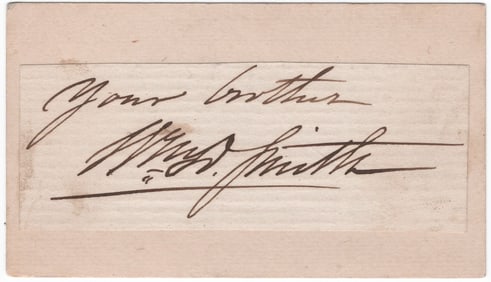 Your brother
Wm D. Smith